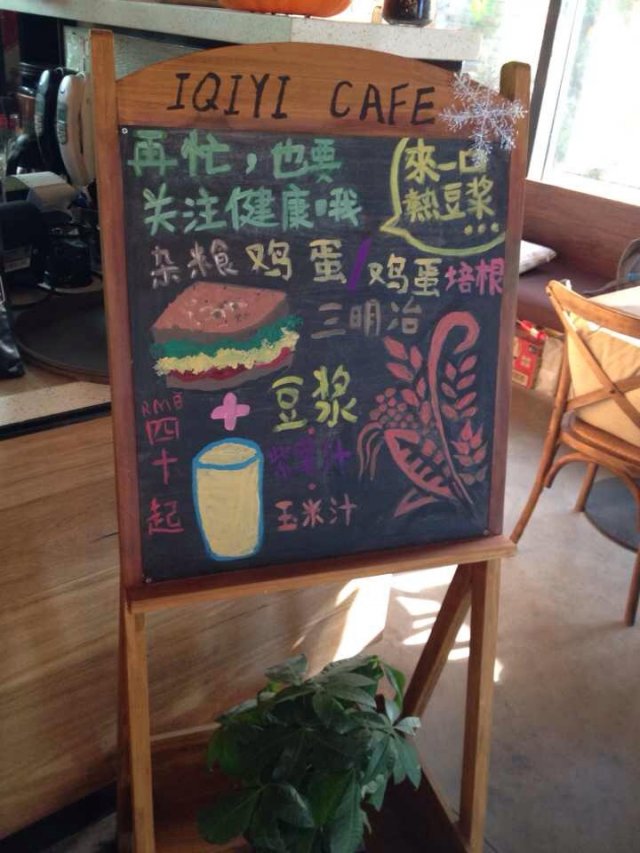 IQIYI CAFE
再忙，也要
关注健康哦
來一口
熱豆浆...
杂粮鸡蛋/鸡蛋培根
三明治
RMB
四十起
+
豆浆
紫薯汁
玉米汁